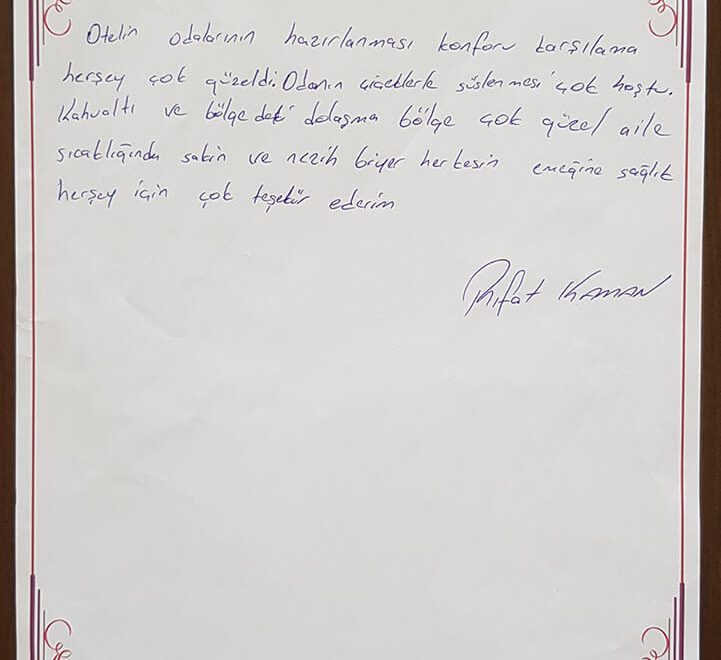 Otelin odalarının hazırlanması konforu karşılama
herşey çok güzeldi. Odanın çiçeklerle süslenmesi çok hoştu.
Kahvaltı ve bölgedeki dolaşma bölge çok güzel aile
sıcaklığında sakin ve nezih biyer herkesin emeğine sağlık
herşey için çok teşekür ederim
Rıfat KAMAN